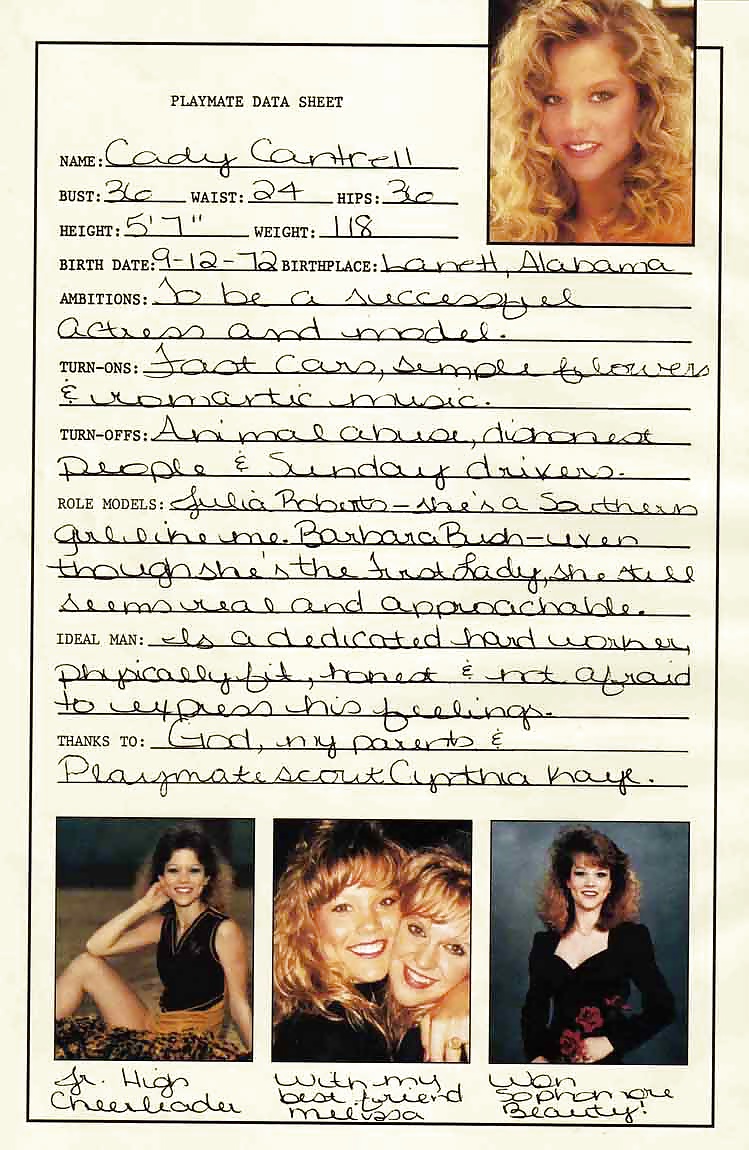 PLAYMATE DATA SHEET
NAME: Cady Cantrell
BUST: 36 WAIST: 24 HIPS: 36
HEIGHT: 5'7" WEIGHT: 118
BIRTH DATE: 9-12-72 BIRTHPLACE: Lanett, Alabama
AMBITIONS: To be a successful
actress and model.
TURN-ONS: Fast cars, simple flowers
& romantic music.
TURN-OFFS: Animal abuse, dishonest
people & Sunday drivers.
ROLE MODELS: Julia Roberts - she's a Southern
girl like me. Barbara Bush - even
though she's the First Lady, she still
seems real and approachable.
IDEAL MAN: Is a dedicated hard worker,
physically fit, honest & not afraid
to express his feelings.
THANKS TO: God, my parents &
Playmate scout Cynthia Kaye.
Jr. High
Cheerleader
With my
best friend
Melissa
Won
Sophomore
Beauty!